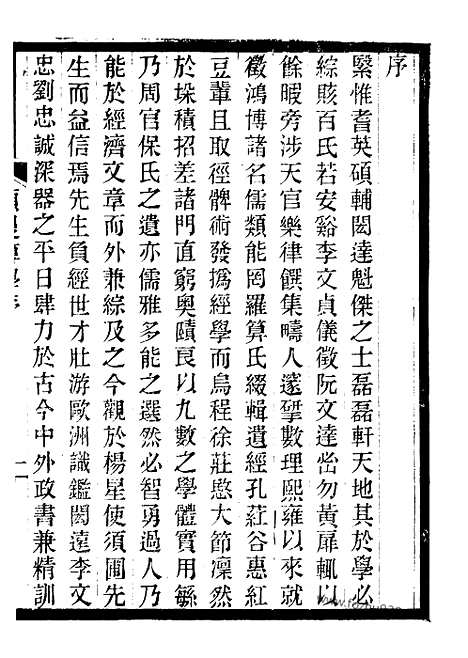 序
緊惟耆英碩輔閎達魁傑之士磊磊軒天地其於學必
綜賅百氏若安谿李文貞儀徵阮文達當勿黃扉輒以
餘暇旁涉天官樂律僎集疇人邃揅數理熙雍以來就
徵鴻博諸名儒類能罔羅算氏綴輯遺經孔葒谷惠紅
豆輩且取徑髀術發撝經學而烏程徐莊愍大節凜然
於垛積招差諸門直窮奧賾良以九數之學體實用緐
乃周官保氏之遺亦儒雅多能之選然必智勇過人乃
能於經濟文章而外兼綜及之今觀於楊星使須圃先
生而益信焉先生負經世才壯游歐洲識鑑閎遠李文
忠劉忠誠深器之平日肆力於古今中外政書兼精訓
序
一